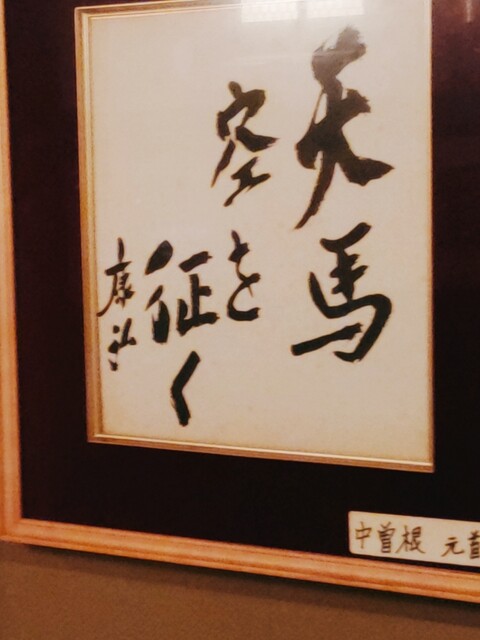 天馬
空を
征く
康弘
中曽根 元首